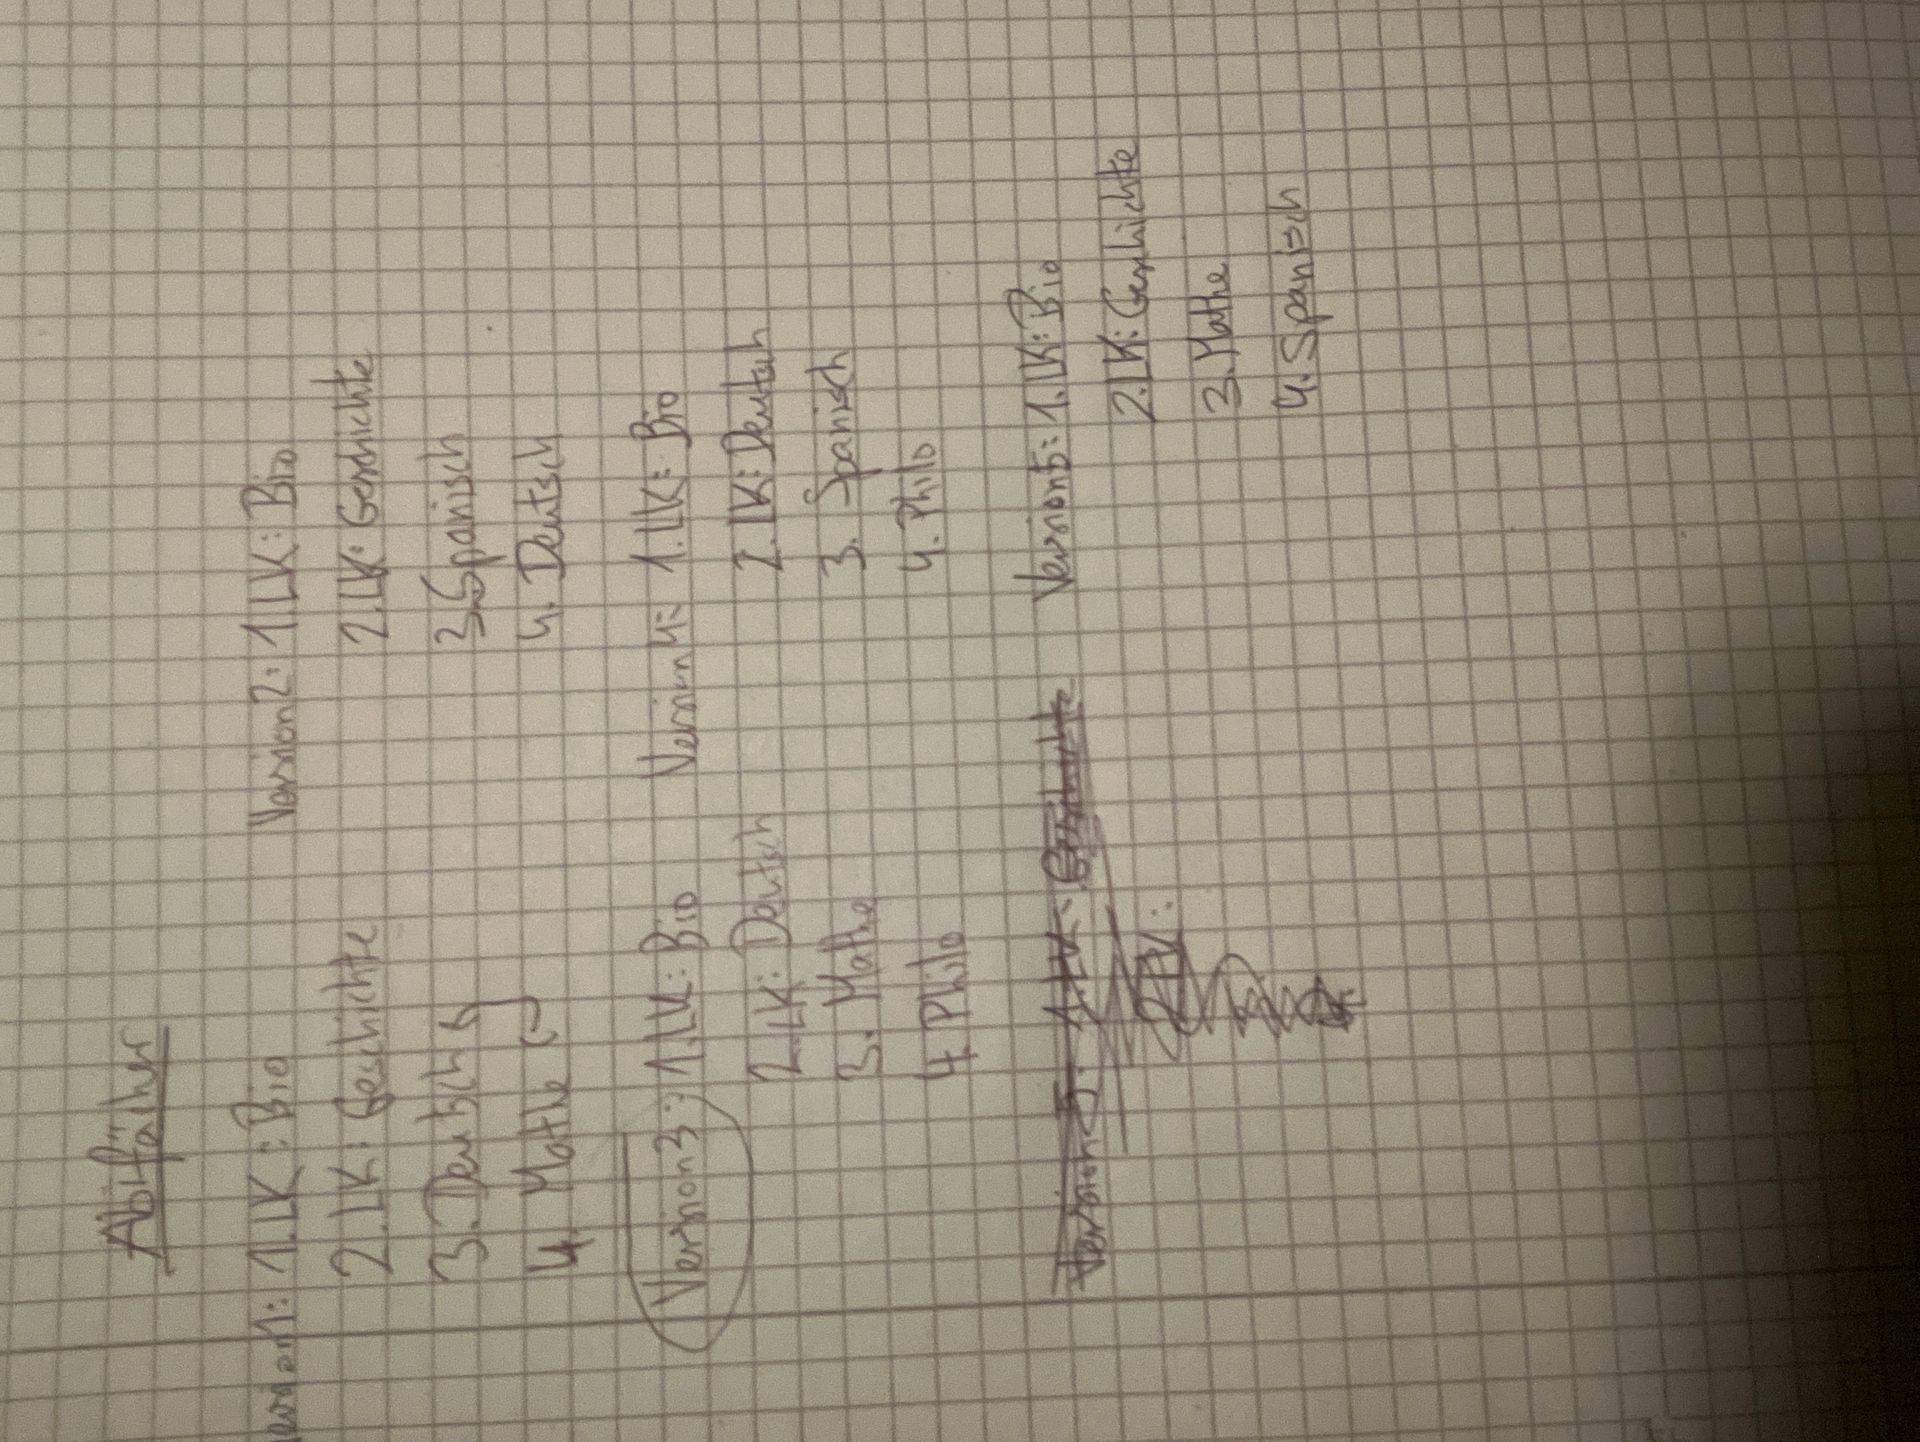 Abifächer
Version1: 1.LK: Bio
2.LK: Geschichte
3. Deutsch
4. Mathe
Version2: 1.LK: Bio
2.LK: Geschichte
3. Spanisch
4. Deutsch
Version3: 1.LK: Bio
2.LK: Deutsch
3. Mathe
4. Philo
Version4: 1.LK: Bio
2.LK: Deutsch
3. Spanisch
4. Philo
Version5: 1.LK: Geschichte
2.LK:
Version5: 1.LK: Bio
2.LK: Geschichte
3. Mathe
4. Spanisch